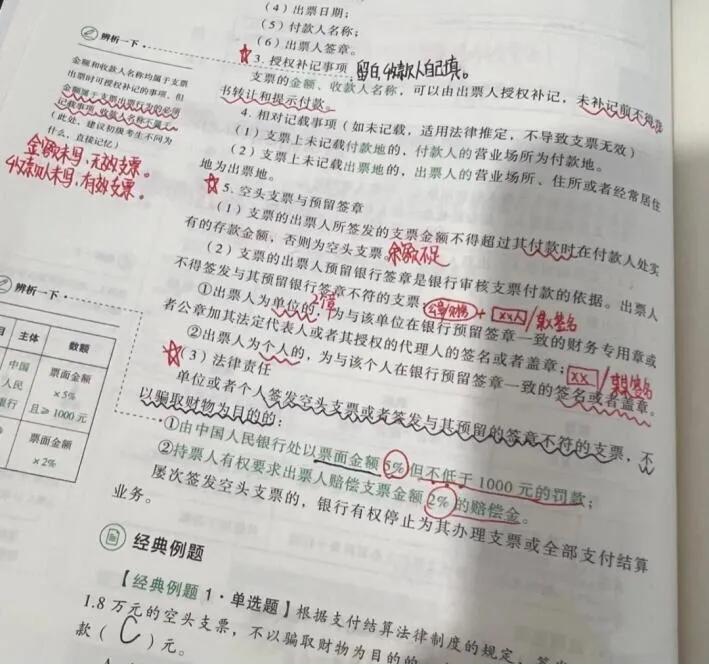 (4) 出票日期；
(5) 付款人名称；
(6) 出票人签章。
辨析一下
金额和收款人名称均属于支票
出票时可授权补记的事项，但
金额属于支票出票行为的必须
记载事项，收款人名称不属于。
(此处，建议初级考生不问为
什么，直接记忆)
金额未写，无效支票。
收款人未写，有效支票。
3. 授权补记事项
留白，收款人自己填。
支票的金额、收款人名称，可以由出票人授权补记，未补记前不得背
书转让和提示付款。
4. 相对记载事项（如未记载，适用法律推定，不导致支票无效）
(1) 支票上未记载付款地的，付款人的营业场所为付款地。
(2) 支票上未记载出票地的，出票人的营业场所、住所或者经常居住
地为出票地。
5. 空头支票与预留签章
(1) 支票的出票人所签发的支票金额不得超过其付款时在付款人处实
有的存款金额，否则为空头支票。
余额不足
(2) 支票的出票人预留银行签章是银行审核支票付款的依据。出票人
不得签发与其预留银行签章不符的支票：
①出票人为单位的，为与该单位在银行预留签章一致的财务专用章或
者公章加其法定代表人或者其授权的代理人的签名或者盖章；
②出票人为个人的，为与该个人在银行预留签章一致的签名或者盖章。
(3) 法律责任
单位或者个人签发空头支票或者签发与其预留的签章不符的支票，不
以骗取财物为目的的：
①由中国人民银行处以票面金额5%但不低于1000元的罚款；
②持票人有权要求出票人赔偿支票金额2%的赔偿金。
屡次签发空头支票的，银行有权停止为其办理支票或全部支付结算
业务。
辨析一下
主体 数额
中国
人民
银行
票面金额
×5%
且≥1000元
票面金额
×2%
经典例题
【经典例题1·单选题】根据支付结算法律制度的规定，
1.8万元的空头支票，不以骗取财物为目的的
款（ C ）元。